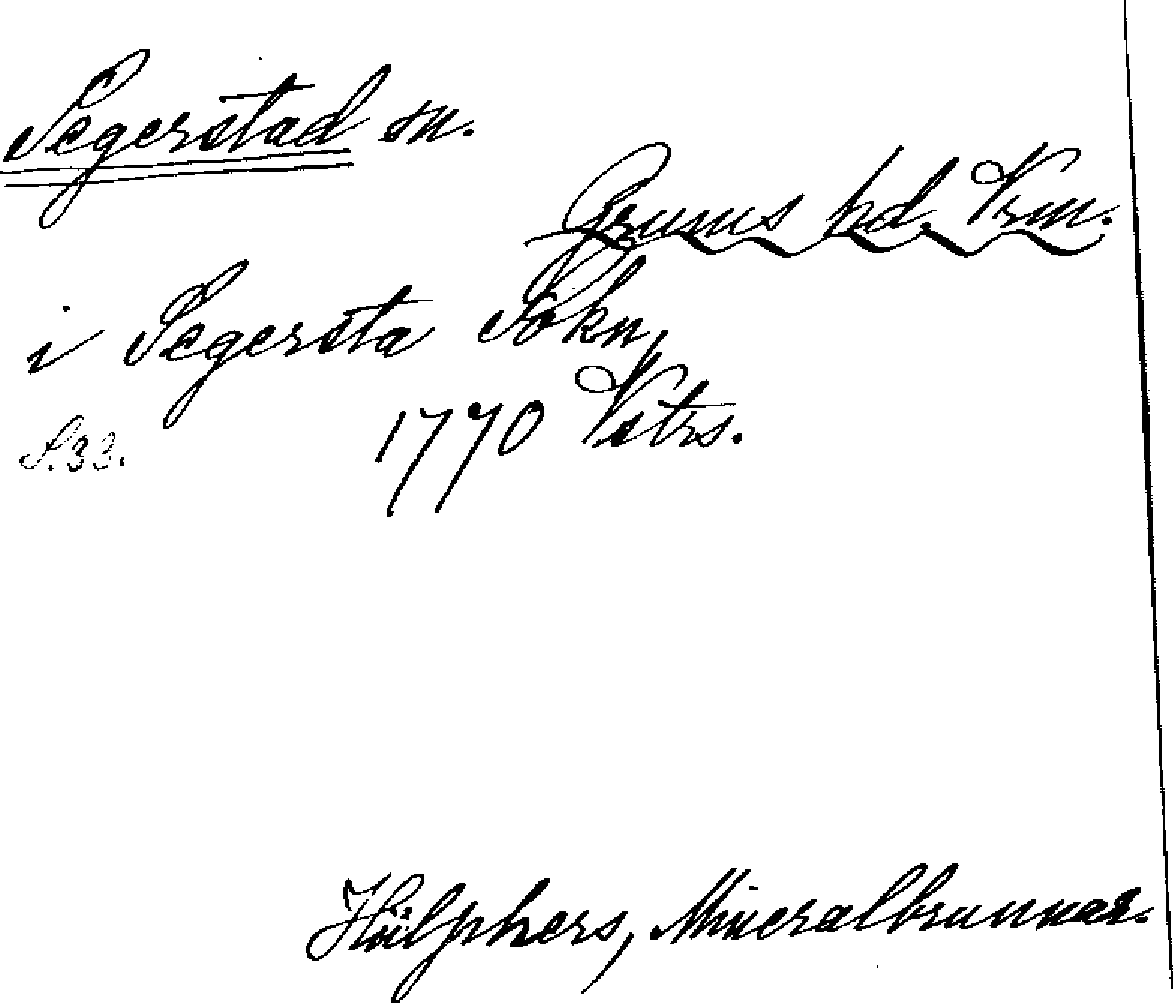 Segerstad sn.
Grums hd. Vrm.
i Segersta Sokn,
1770 Vstrs.
S. 33.
Hülphers, Mineralbrunnar.